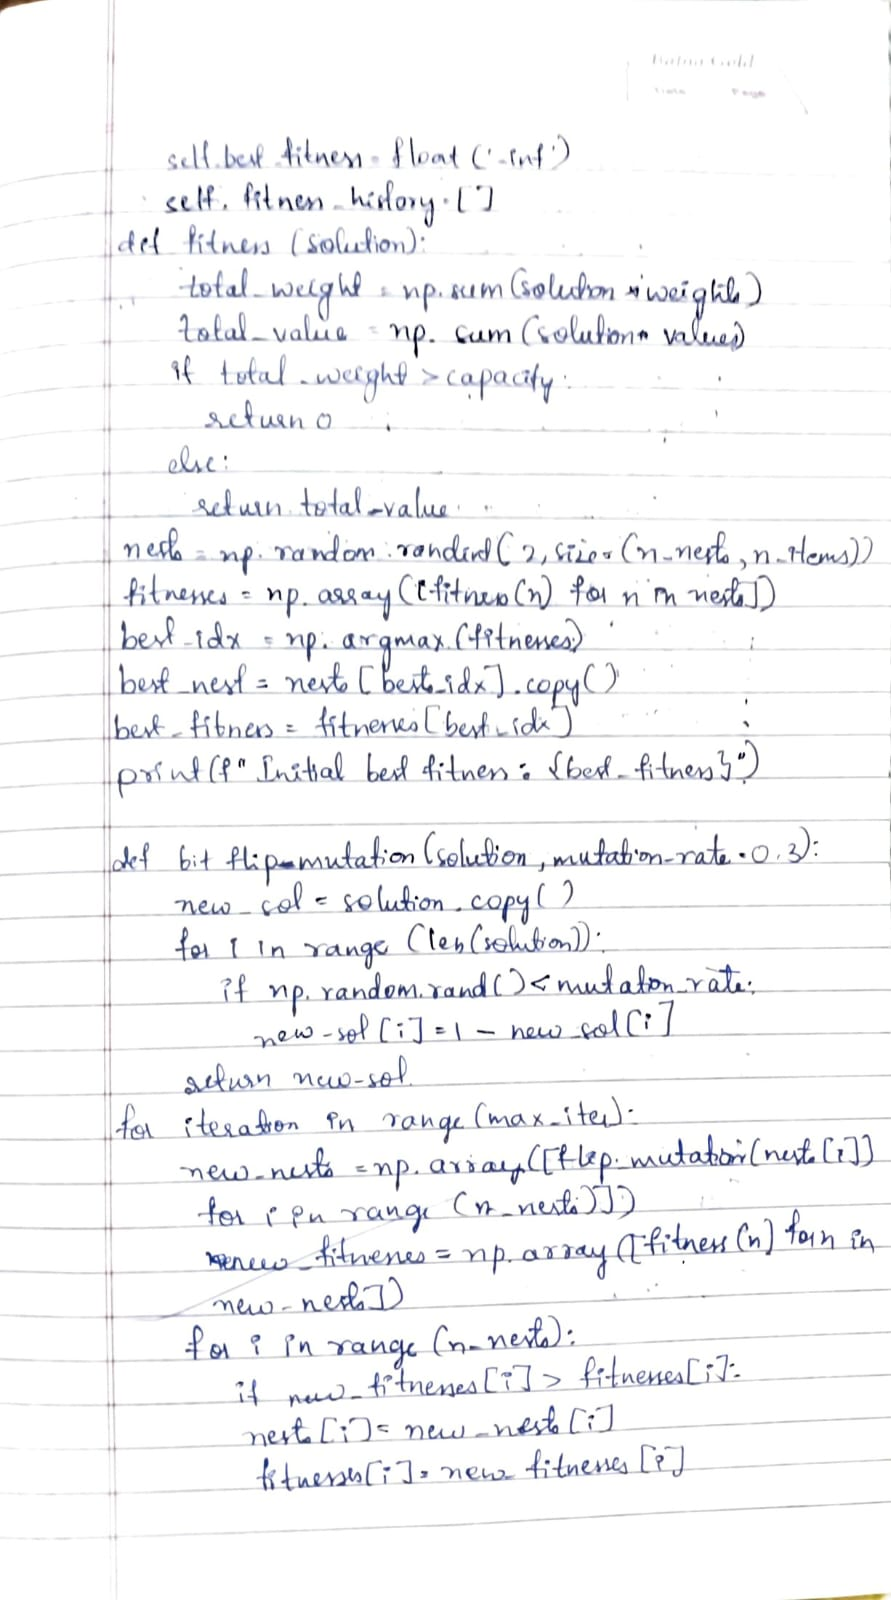 self.best fitness = float('-inf')
self. fitness_history = []
def fitness (solution):
total_weight = np.sum(solution * weights)
total_value = np. sum (solution * values)
if total_weight > capacity:
return 0
else:
return total_value
nests = np. random.randint(2, size=(n_nests, n_items))
fitnesses = np. array([fitness(n) for n in nests])
best_idx = np. argmax.(fitnesses)
best_nest = nests [best_idx].copy()
best_fitness = fitnesses[best_idx]
print(f" Initial best fitness: {best_fitness}")
def bit flip_mutation (solution, mutation-rate = 0.3):
new_sol = solution.copy()
for i in range (len(solution)):
if np. random.rand() < mutation_rate:
new-sol [i] = 1 - new_sol[i]
return new-sol
for iteration in range (max_iter):
new_nests = np. array([flip_mutation(nests[i])
for i in range (n_nests)])
new_fitnesses = np. array([fitness(n) for n in
new-nests])
for i in range (n_nests):
if new_fitnesses[i] > fitnesses[i]:
nests[i] = new_nests [i]
fitnesses[i] = new fitnesses [i]